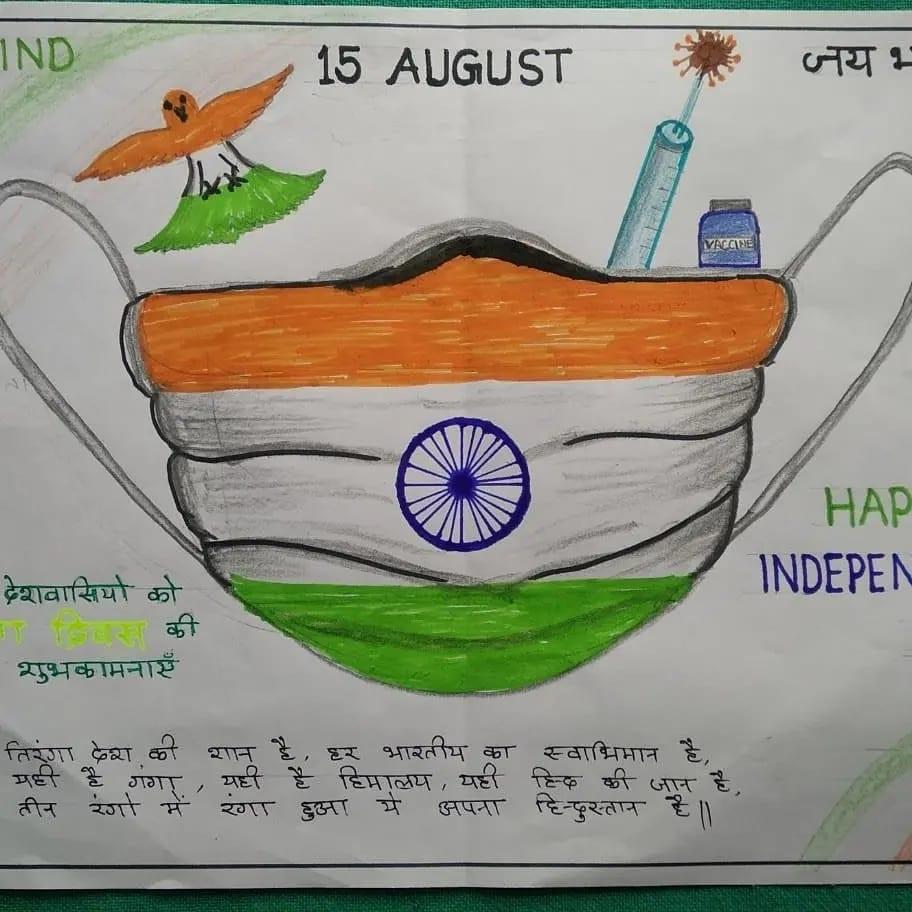 IND
15 AUGUST
जय भ
VACCINE
HAP
INDEPEN
देशवासियो को
दिवस की
शुभकामनाएँ
तिरंगा देश की शान है, हर भारतीय का स्वाभिमान है,
यही है गंगा, यही है हिमालय, यही हिन्द की जान है,
तीन रंगो में रंगा हुआ ये अपना हिन्दुस्तान है॥